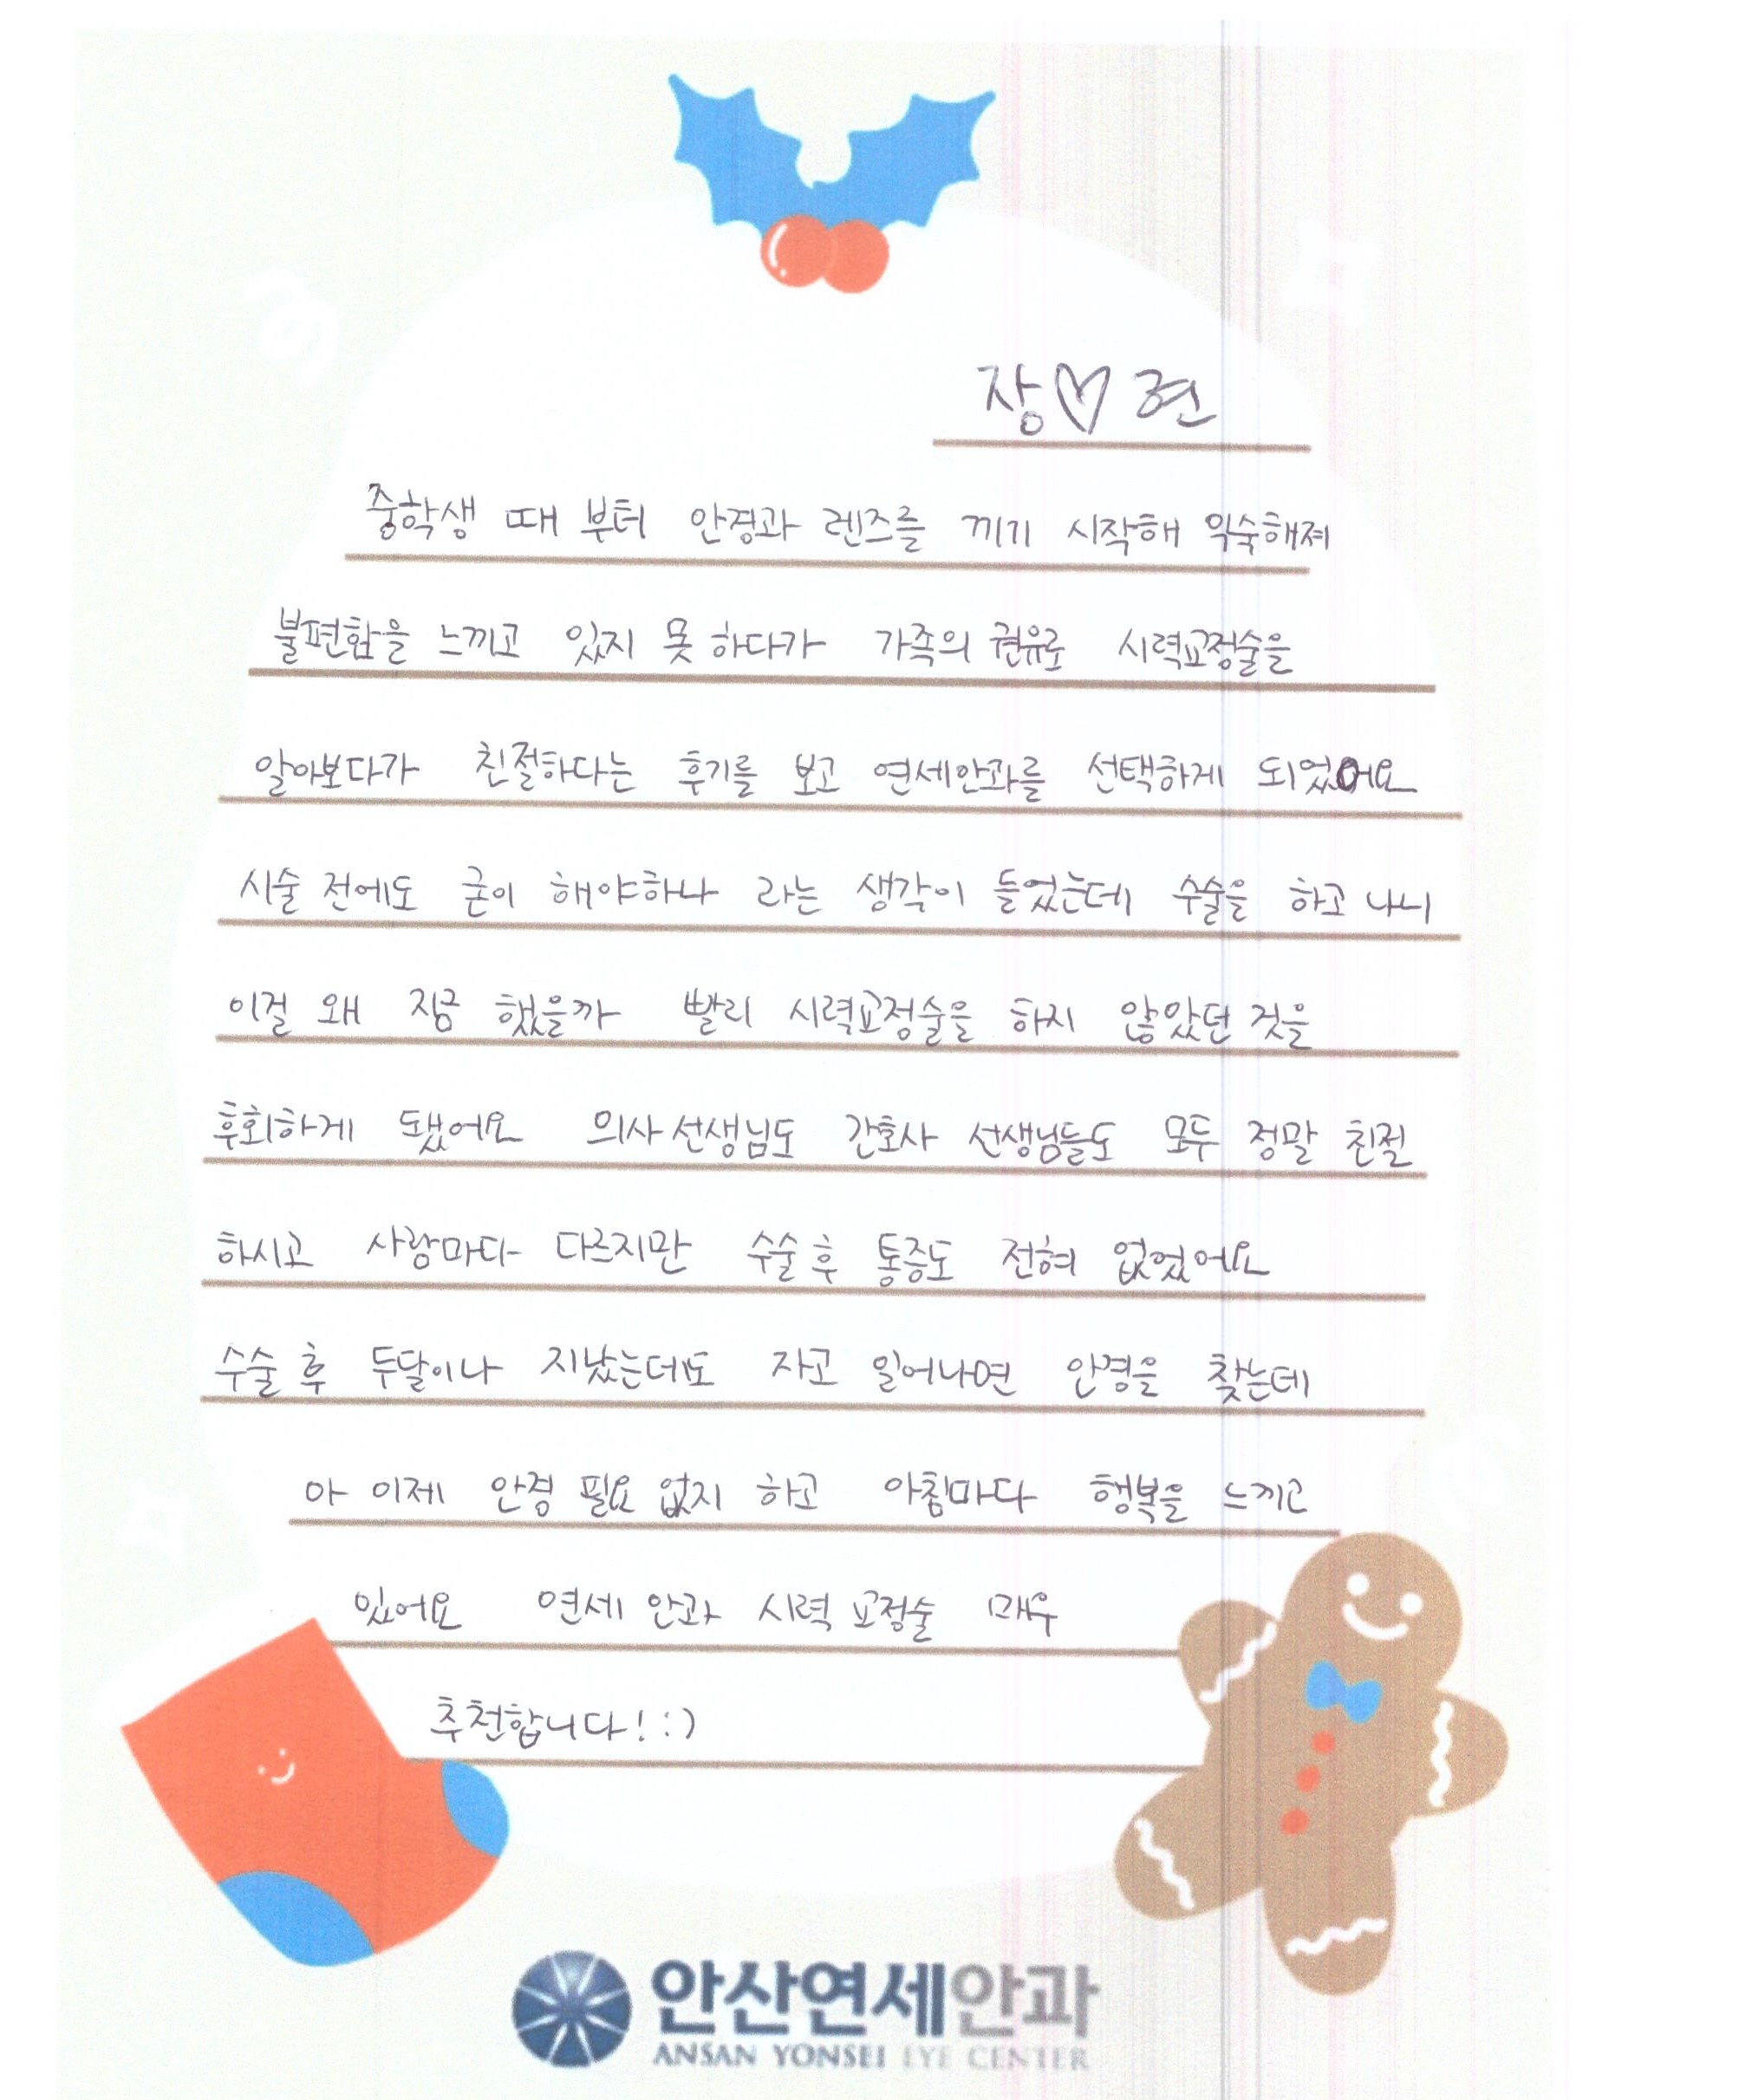 장♡현
중학생 때 부터 안경과 렌즈를 끼기 시작해 익숙해져
불편함을 느끼고 있지 못 하다가 가족의 권유로 시력교정술을
알아보다가 친절하다는 후기를 보고 연세안과를 선택하게 되었어요
시술 전에도 굳이 해야하나 라는 생각이 들었는데 수술을 하고 나니
이걸 왜 지금 했을까 빨리 시력교정술을 하지 않았던 것을
후회하게 됐어요 의사선생님도 간호사 선생님들도 모두 정말 친절
하시고 사람마다 다르지만 수술 후 통증도 전혀 없었어요
수술 후 두달이나 지났는데도 자고 일어나면 안경을 찾는데
아 이제 안경 필요 없지 하고 아침마다 행복을 느끼고
있어요 연세 안과 시력 교정술 매우
추천합니다! :)
안산연세안과
ANSAN YONSEI EYE CENTER